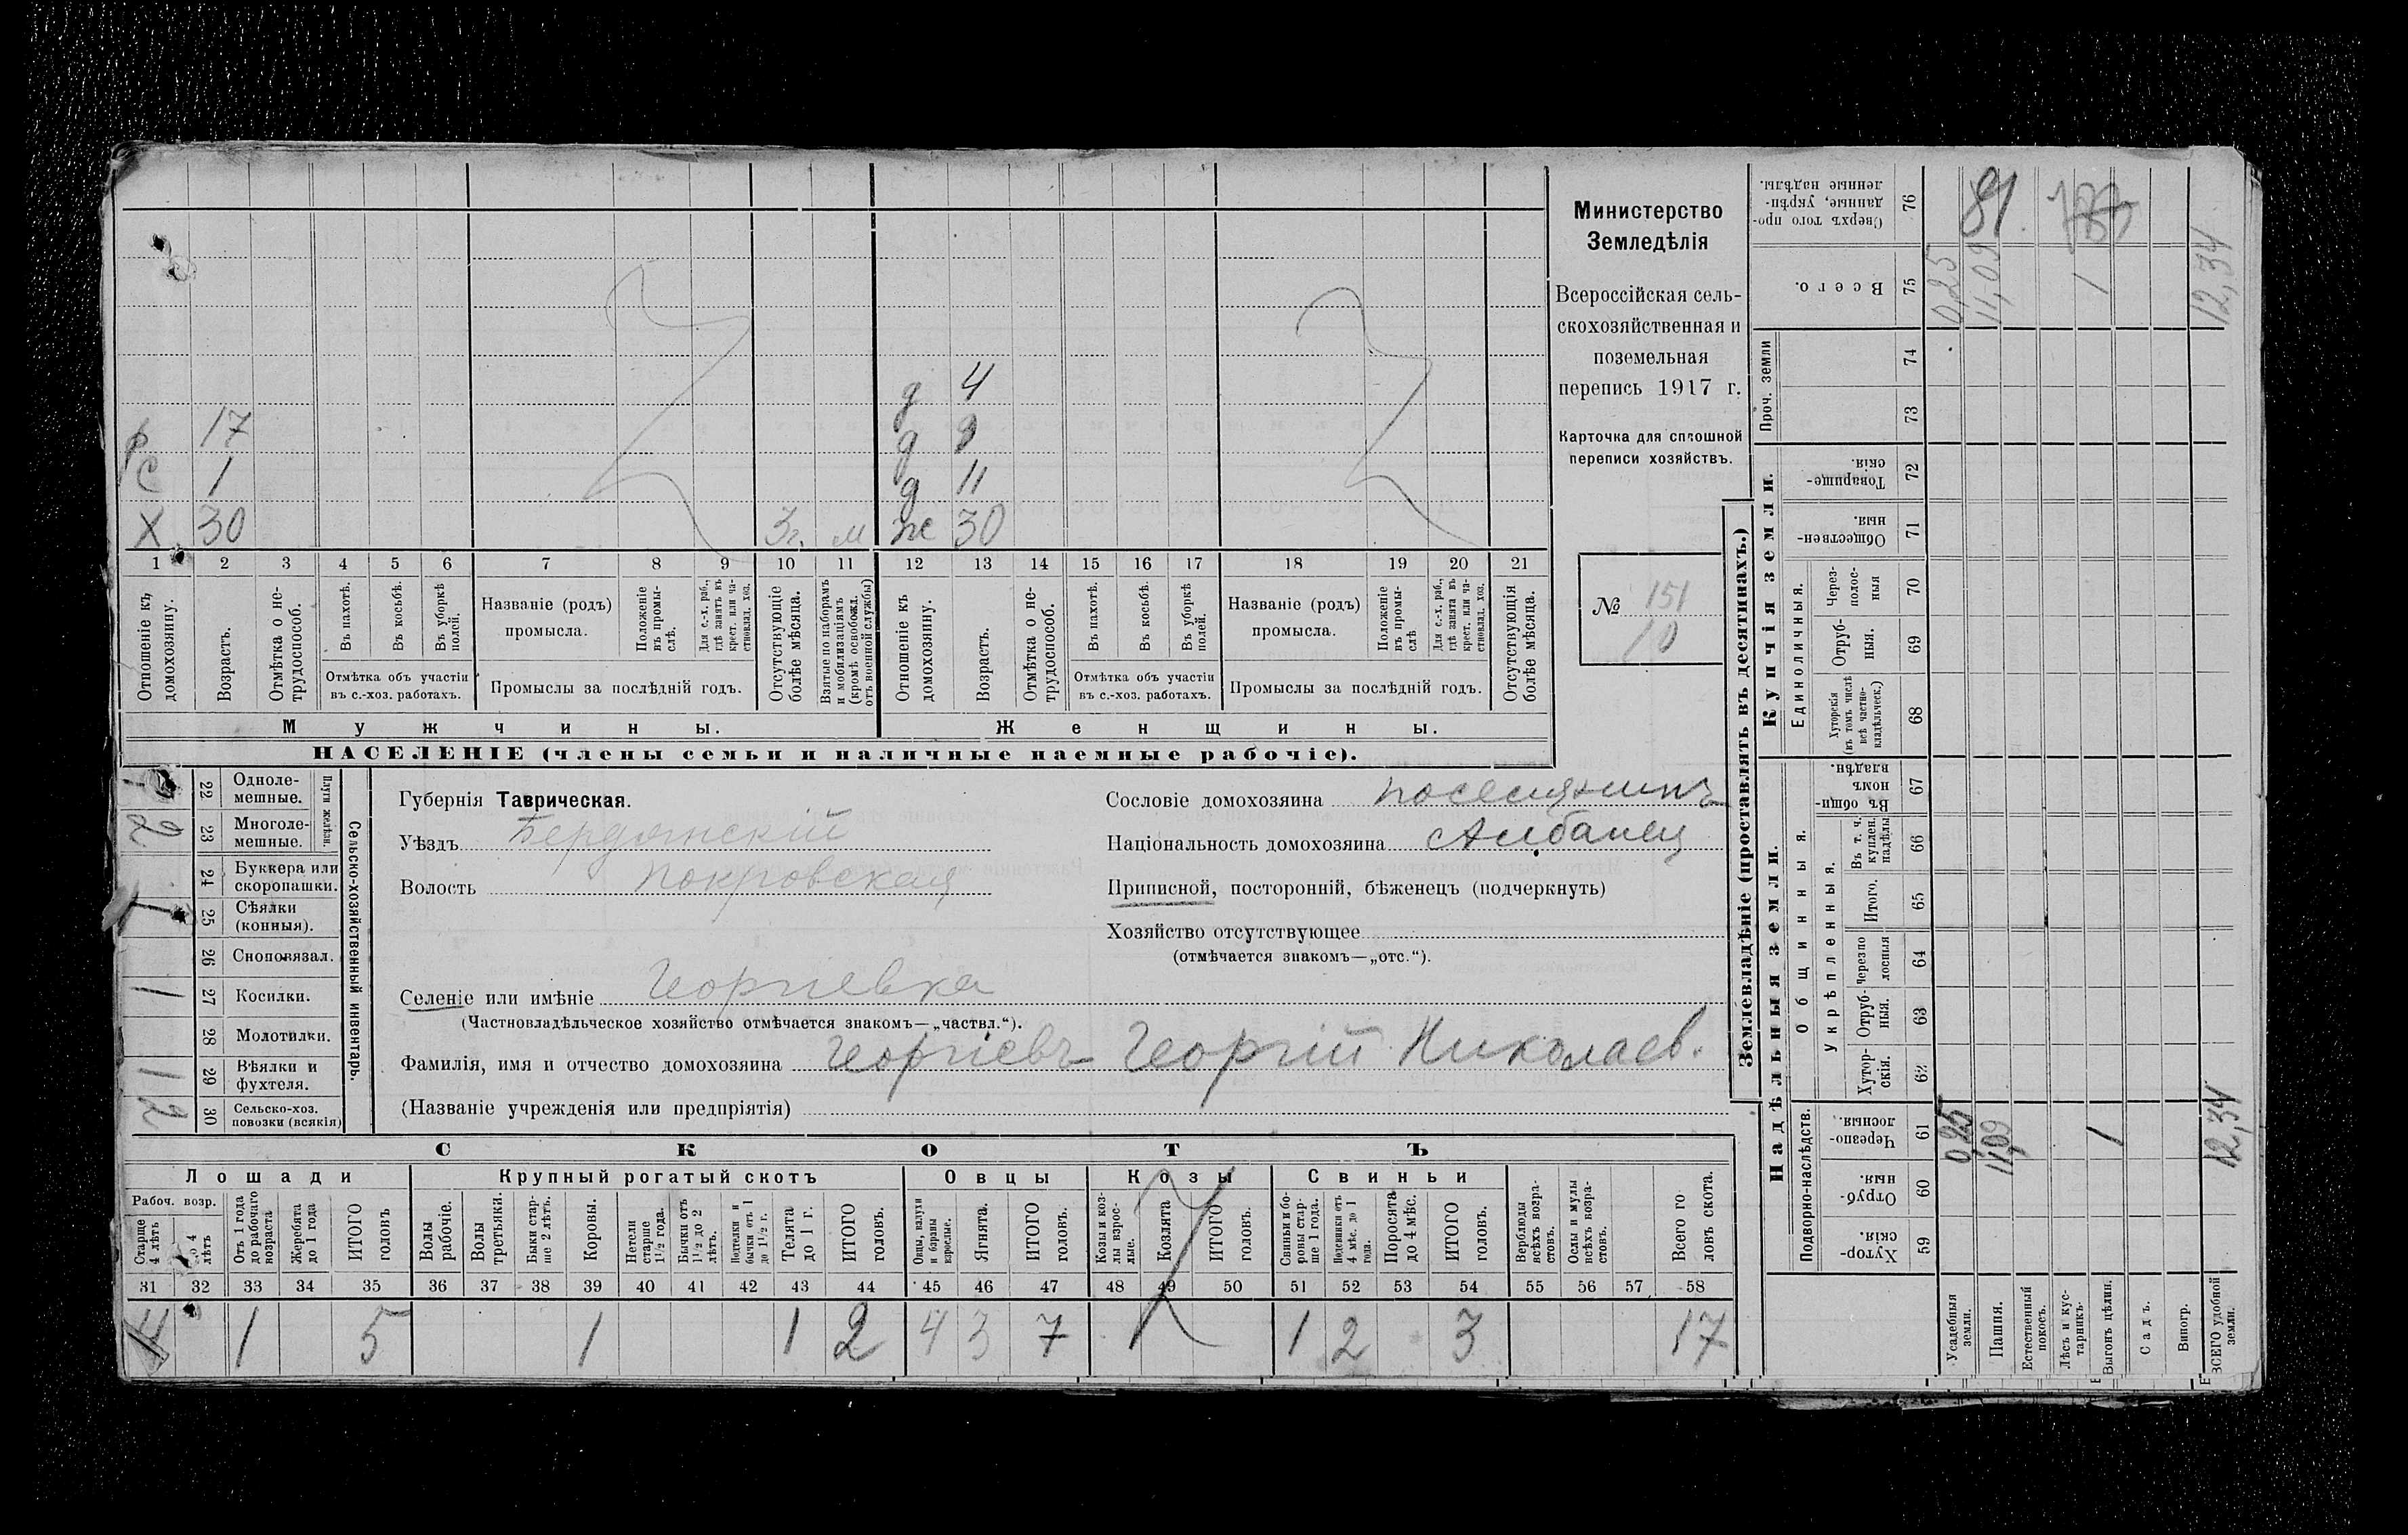 Министерство
Земледѣлія
Всероссійская сель-
скохозяйственная и
поземельная
перепись 1917 г.
Карточка для сплошной
переписи хозяйствъ.
№ 151
10
д 4
р 17 д 9
с 1 д 11
Х 30 3 г. м ж 30
1 2 3 4 5 6 7 8 9 10 11 12 13 14 15 16 17 18 19 20 21
Отношеніе къ домохозяину.
Возрастъ.
Отмѣтка о не-трудоспособ.
Въ пахотѣ.
Въ косьбѣ.
Въ уборкѣ полей.
Отмѣтка объ участіи
въ с.-хоз. работахъ.
Названіе (родъ)
промысла.
Положеніе въ промы-слѣ.
Для с.-х. раб., гдѣ занятъ въ крест. или ча-стновлад. хоз.
Промыслы за послѣдній годъ.
Отсутствующіе болѣе мѣсяца.
Взятые по наборамъ и мобилизаціямъ (кромѣ освобожд. отъ военной службы)
Отношеніе къ домохозяину.
Возрастъ.
Отмѣтка о не-трудоспособ.
Въ пахотѣ.
Въ косьбѣ.
Въ уборкѣ полей.
Отмѣтка объ участіи
въ с.-хоз. работахъ.
Названіе (родъ)
промысла.
Положеніе въ промы-слѣ
Для с.-х. раб., гдѣ занята въ крест. или ча-стновлад. хоз.
Промыслы за послѣдній годъ.
Отсутствующія болѣе мѣсяца.
Мужчины. Женщины.
НАСЕЛЕНІЕ (члены семьи и наличные наемные рабочіе).
Сельско-хозяйственный инвентарь.
Плуги желѣзн.
22 Однолемешные.
2 23 Многолемешные.
24 Буккера или скоропашки.
1 25 Сѣялки (конныя).
26 Сноповязал.
1 27 Косилки.
28 Молотилки.
1 29 Вѣялки и фухтеля.
2 30 Сельско-хоз. повозки (всякія)
Губернія Таврическая.
Уѣздъ Бердянскій
Волость Покровская
Сословіе домохозяина поселянинъ
Національность домохозяина Албанец
Приписной, посторонній, бѣженецъ (подчеркнуть)
Хозяйство отсутствующее
(отмѣчается знакомъ—„отс.“).
Селеніе или имѣніе Георгіевка
(Частновладѣльческое хозяйство отмѣчается знакомъ—„частвл.“).
Фамилія, имя и отчество домохозяина Георгіевъ Георгій Николаев.
(Названіе учрежденія или предпріятія)
СКОТЪ
Лошади Крупный рогатый скотъ Овцы Козы Свиньи
Рабоч. возр.
Старше 4 лѣтъ
До 4 лѣтъ
Отъ 1 года до рабочаго возраста
Жеребята до 1 года
ИТОГО головъ
Волы рабочіе.
Волы третьяки.
Быки стар-ше 2 лѣтъ.
Коровы.
Нетели старше 1 1/2 года.
Бычки отъ 1 1/2 до 2 лѣтъ.
Подтелки и бычки отъ 1 до 1 1/2 г.
Телята до 1 г.
ИТОГО головъ.
Овцы, валухи и бараны взрослые.
Ягнята.
ИТОГО головъ.
Козы и коз-лы взрос-лые.
Козлята
ИТОГО головъ.
Свиньи и бо-ровы стар-ше 1 года.
Подсвинки отъ 4 мѣс. до 1 года.
Поросята до 4 мѣс.
ИТОГО головъ.
Верблюды всѣхъ возра-стовъ.
Ослы и мулы всѣхъ возра-стовъ.
Всего го ловъ скота.
31 32 33 34 35 36 37 38 39 40 41 42 43 44 45 46 47 48 49 50 51 52 53 54 55 56 57 58
4 1 5 1 1 2 4 3 7 1 2 3 17
Землевладѣніе (проставлять въ десятинахъ.)
Купчія земли.
Надѣльныя земли.
Сверхъ того про-данные, укрѣп-ленные надѣлы. 76 81.
Всего. 75 0,25 11,09 1 12,34
Проч. земли
74
73
Товарище-скія. 72
Обществен-ныя. 71
Единоличныя.
Через-полос-ныя 70
Отруб-ныя. 69
Хуторскія (въ томъ числѣ всѣ частно-владѣльческ.) 68
Общинныя.
Въ общин-номъ владѣн. 67
Укрѣпленныя.
Въ т. ч. куплен. надѣлы 66
Итого. 65
Черезпо лосныя 64
Отруб-ныя. 63
Хутор-скія. 62
Подворно-наслѣдств.
Черезпо-лосныя. 61 0,25 11,09 1 12,34
Отруб-ныя. 60
Хутор-скія. 59
Усадебныя земли.
Пашня.
Естественный покосъ.
Лѣсъ и кус-тарникъ.
Выгонъ цѣлин.
Садъ.
Виногр.
ВСЕГО удобной земли.